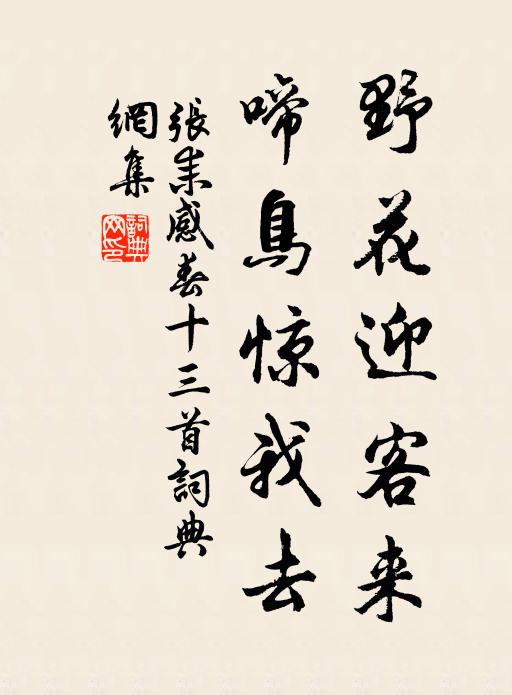 野花迎客来
啼鳥惊我去
張耒感春十三首詞典
網集
詞典網印